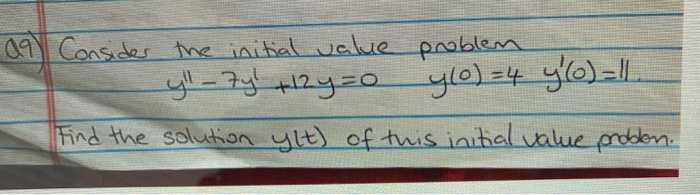 Q9) Consider the initial value problem
y'' - 7y' + 12y = 0 y(0) = 4 y'(0) = 11.
Find the solution y(t) of this initial value problem.